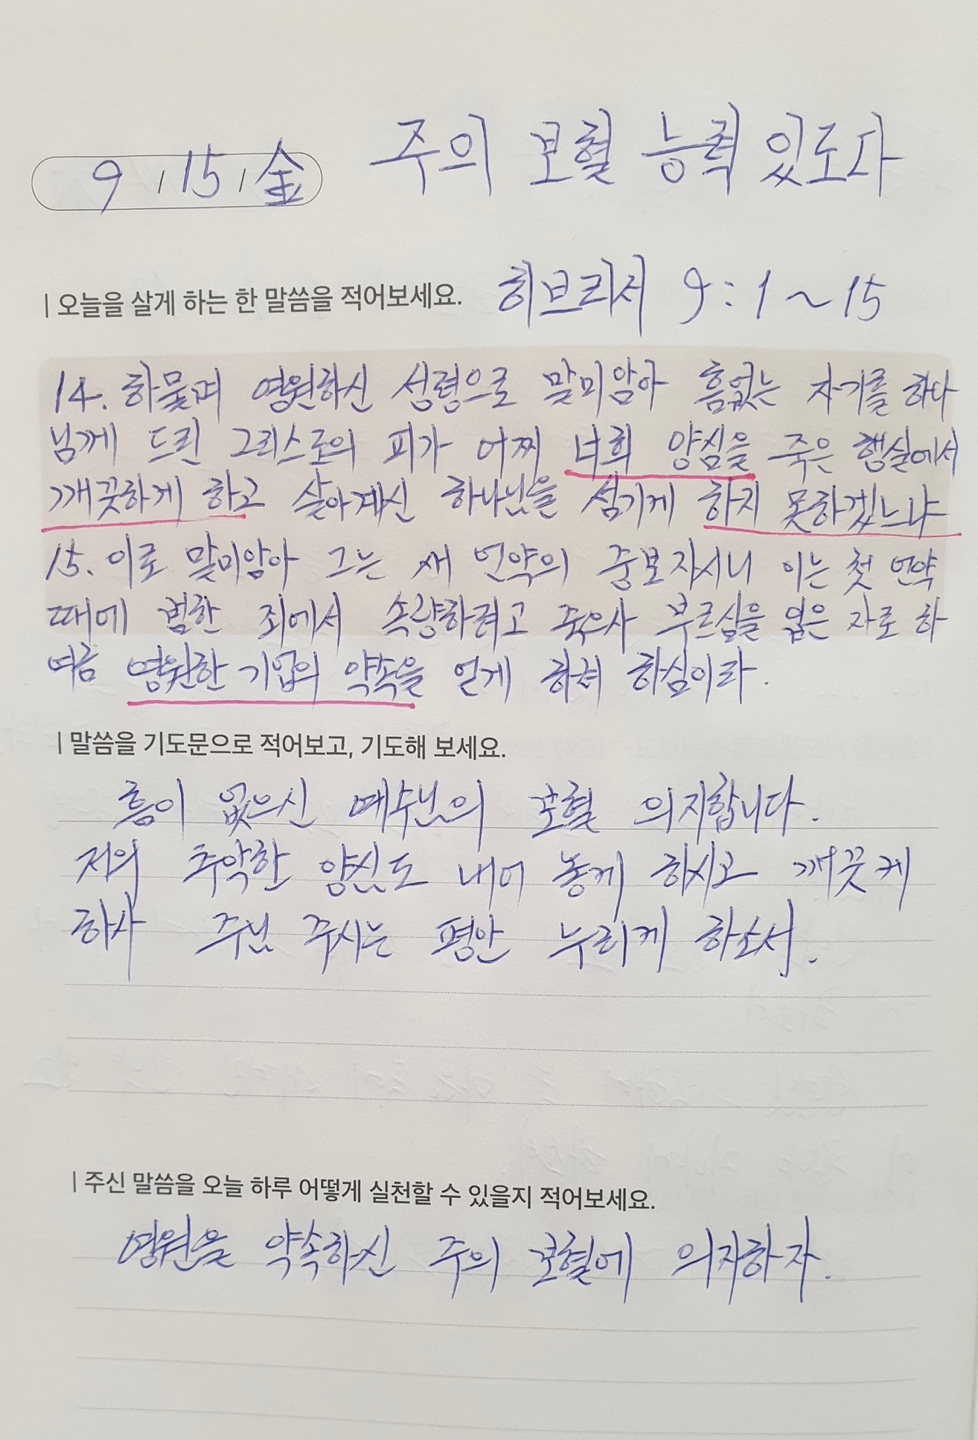 9 / 15 / 金 주의 보혈 능력 있도다
| 오늘을 살게 하는 한 말씀을 적어보세요. 히브리서 9:1~15
14. 하물며 영원하신 성령으로 말미암아 흠없는 자기를 하나
님께 드린 그리스도의 피가 어찌 너희 양심을 죽은 행실에서
깨끗하게 하고 살아계신 하나님을 섬기게 하지 못하겠느냐
15. 이로 말미암아 그는 새 언약의 중보자시니 이는 첫 언약
때에 범한 죄에서 속량하려고 죽으사 부르심을 입은 자로 하
여금 영원한 기업의 약속을 얻게 하려 하심이라.
| 말씀을 기도문으로 적어보고, 기도해 보세요.
흠이 없으신 예수님의 보혈 의지합니다.
저의 추악한 양심도 내어 놓게 하시고 깨끗케
하사 주님 주시는 평안 누리게 하소서.
| 주신 말씀을 오늘 하루 어떻게 실천할 수 있을지 적어보세요.
영원을 약속하신 주의 보혈에 의지하자.